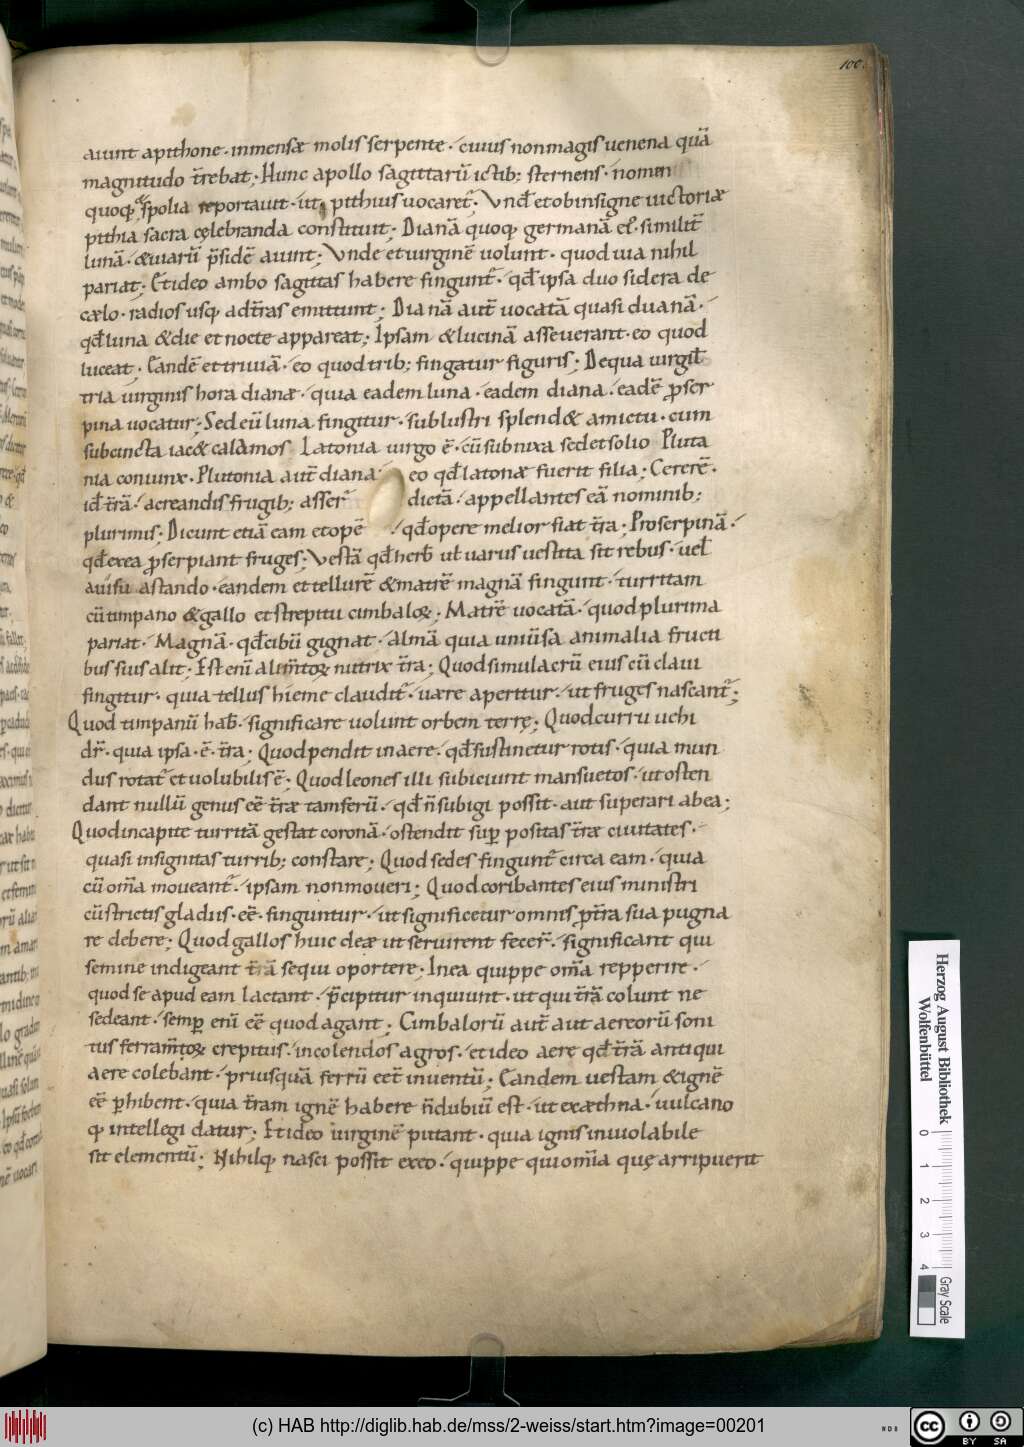 100
aiunt apithone · inmensæ molis serpente · cuius nonmagis uenena quã
magnitudo t̄rebat; Hunc apollo sagittarũ ictib; sternens · nomin
quoq; spolia reportauit · ut pithius uocaret̃ · Vnđ etobinsigne uictoriæ
pithia sacra cęlebranda constituit; Dianã quoq; germanã eẏ · similit̃
lunã · &uiarũ p̄sidẽ aiunt; Vnde etuirginẽ uolunt · quod uia nihil
pariat; Etideo ambo sagittas habere fingunt̃ · qđ ipsa duo sidera de
cælo · radios usq; adt̄ras emittunt; Dianã aut̃ uocatã quasi duanã ·
qđ luna &die et nocte appareat; Ipsam &lucinã asseuerant · eo quod
luceat · Eandẽ et triuiã · eo quod trib; fingatur figuris; Dequa uirgił
tria uirginis hora dianæ · quia eadem luna · eadem diana · eadẽ p̱ser
pina uocatur; Sed cũ luna fingitur · sublustri splend& amictu · cum
subcincta iac& calamos Latonia uirgo ẽ · cũ subnixa sedet solio Pluta
nia coniunx · Plutonia aut̃ diana eo qđ latonæ fuerit filia; Cererẽ ·
iđ t̄rã · acreandis frugib; asser̃ dictã · appellantes eã nominib;
plurimis; Dicunt etiã eam et opẽ · qđ opere melior fiat t̄ra; Proserpinã ·
qđ exea p̱serpiant fruges; Vestã qđ herƀ uł uarus uestita sit rebus · ueł
auisu astando · eandem et tellurẽ &matrẽ magnã fingunt · turritam
cũ timpano &gallo et strepitu cimbaloꝝ; Matrẽ uocatã · quod plurima
pariat · Magnã · qđ cibũ gignat · Almã quia uniũsa animalia fructi
bus suis alit; Est enĩ alim̃toꝝ nutrix t̄ra; Quod simulacrũ eius cũ claui
fingitur · quia tellus hieme claudit̃ · uære aperitur · ut fruges nascant̃;
Quod timpanũ haƀ · significare uolunt orbem terrę; Quod curru uehi
dr̃ · quia ipsa · ẽ · t̄ra; Quod pendit in aere · qđ sustinetur rotis · quia mun
dus rotat̃ et uolubilis ẽ; Quod leones illi subiciunt mansuetos · ut osten
dant nullũ genus eẽ t̄ræ tam ferũ · qđ ñ subigi possit · aut superari abea;
Quod incapite turritã gestat coronã · ostendit sup̱positas t̄ræ ciuitates ·
quasi insignitas turrib; constare; Quod sedes fingunt̃ circa eam · quia
cũ om̃a moueant̃ · ipsam non moueri; Quod coribantes eius ministri
cũ strictis gladiis · eẽ · finguntur · ut significetur omnis p̱t̄ra sua pugna
re debere; Quod gallos huic deæ ut seruirent fecer̃ · significant qui
semine indigeant t̄rã sequi oportere; Inea quippe om̃a repperire ·
quod se apud eam lactant · p̄cipitur inquiunt · ut qui t̄rã colunt ne
sedeant · semp̱ enĩ eẽ quod agant; Cimbalorũ aut̃ aut aereorũ soni
tus ferram̃toꝝ crepitus · incolendos agros · et ideo aere qđ t̄rã antiqui
aere colebant · priusquã ferrũ eet̃ inuentũ; Eandem uestam &ignẽ
eẽ p̱hibent · quia t̄ram ignẽ habere ñ dubiũ est · ut exæthna · uulcano
q; intellegi datur; Et ideo uirginẽ putant · quia ignis inuiolabile
sit elementũ; Nihilq; nasci possit exeo · quippe qui om̃ia quę arripuerit
Herzog August Bibliothek
Wolfenbüttel
0 1 2 3 4
Gray Scale
(c) HAB http://diglib.hab.de/mss/2-weiss/start.htm?image=00201
cc BY SA